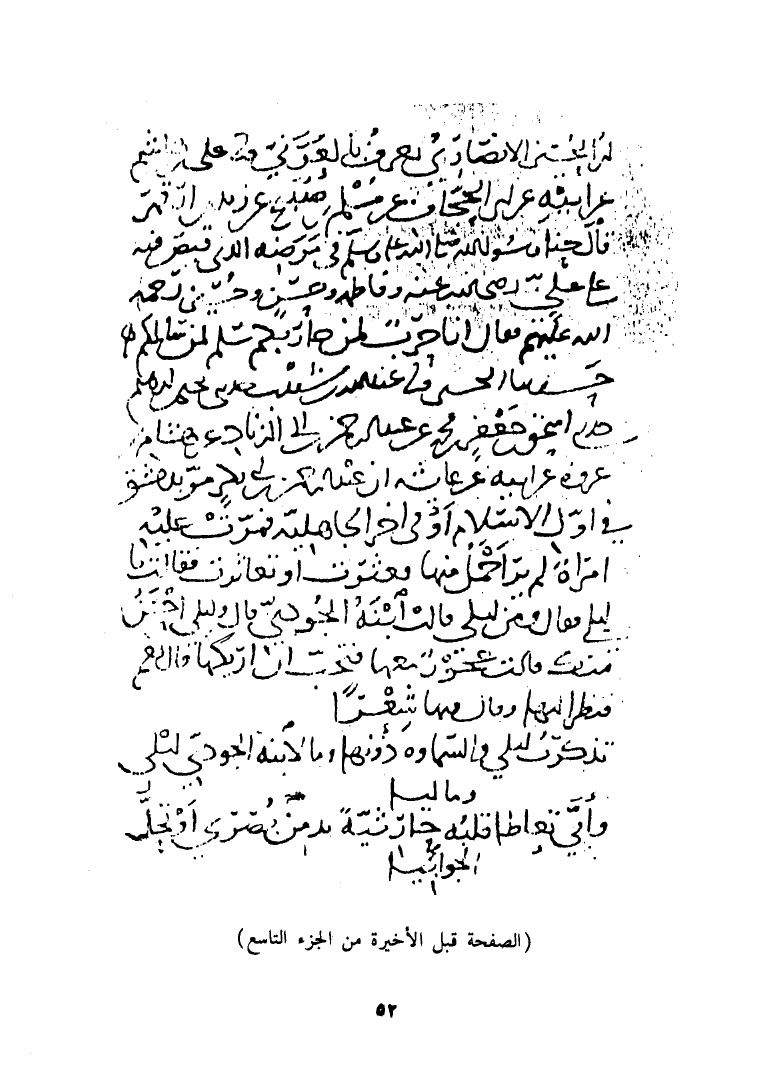 الانصاري يعرف بالعرني على بن هاشم
عن ابيه عن ابي الجحاف عن مسلم بن صبيح عن زيد بن ارقم
قال حنا رسول الله صلى الله عليه وسلم في مرضه الذي قبض فيه
على علي رضي الله عنه وفاطمه وحسن وحسين رحمه
الله عليهم فقال انا حرب لمن حاربكم سلم لمن سالمكم
حدثنا الحسين
جعفر بن محمد عن عبد الرحمن بن ابي الزناد عن هشام بن
عروه عن ابيه عن عائشه ان عبد الرحمن بن ابي بكر مر بدمشق
في اول الاسلام او في اخر الجاهليه فمرت عليه
امراة لم ير اجمل منها فعثرت او تعاثرت فقالت يا
ليلى فقال ومن ليلى قالت ابنة الجودي قال وليلى احسن
منك قالت نعم فتحب ان اريكها قال نعم
فنظر اليها وقال فيها شعرا
تذكرت ليلى والسماوه دونها وما لابنه الجودي ليلى
وما ليا
وأنى تعاطا قلبه حارثية تدمن بصرى او تحل
الجوابيا
(الصفحة قبل الأخيرة من الجزء التاسع)
٥٢